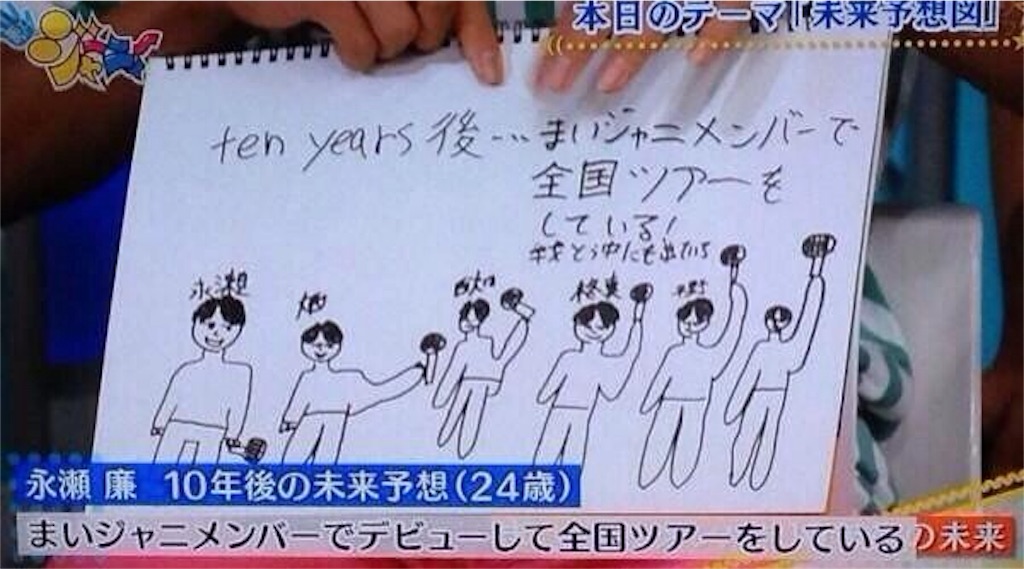 本日のテーマ「未来予想図」
ten years 後…まいジャニメンバーで
全国ツアーを
している!
永瀬
西畑
平野
永瀬 廉 10年後の未来予想(24歳)
まいジャニメンバーでデビューして全国ツアーをしている
の未来